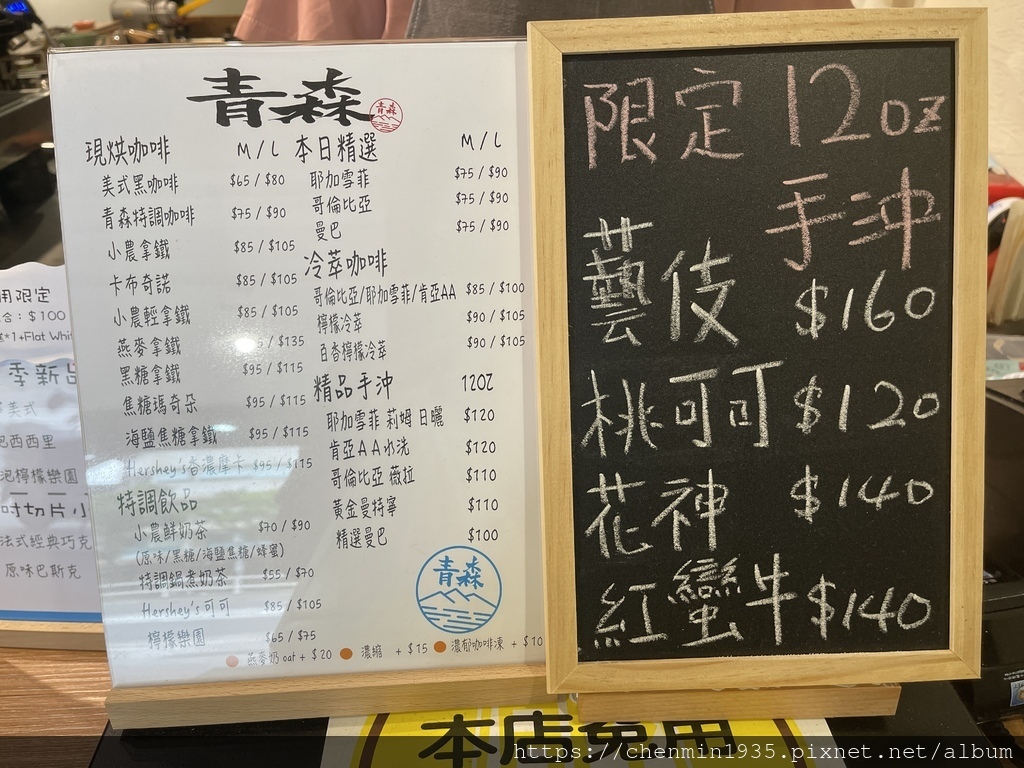 青森
青森
現烘咖啡 M / L
美式黑咖啡 $65 / $80
青森特調咖啡 $75 / $90
小農拿鐵 $85 / $105
卡布奇諾 $85 / $105
小農輕拿鐵 $85 / $105
燕麥拿鐵 / $135
黑糖拿鐵 $95 / $115
焦糖瑪奇朵 $95 / $115
海鹽焦糖拿鐵 $95 / $115
Hershey's香濃摩卡 $95 / $115
特調飲品
小農鮮奶茶 $70 / $90
(原味/黑糖/海鹽焦糖/蜂蜜)
特調鍋煮奶茶 $55 / $70
Hershey's可可 $85 / $105
檸檬樂園 $65 / $75
本日精選 M / L
耶加雪菲 $75 / $90
哥倫比亞 $75 / $90
曼巴 $75 / $90
冷萃咖啡
哥倫比亞/耶加雪菲/肯亞AA $85 / $100
檸檬冷萃 $90 / $105
百香檸檬冷萃 $90 / $105
精品手沖 12OZ
耶加雪菲 莉姆 日曬 $120
肯亞AA水洗 $120
哥倫比亞 薇拉 $110
黃金曼特寧 $110
精選曼巴 $100
青森
燕麥奶 oat + $20 濃縮 + $15 濃郁咖啡凍 + $10
限定 12oz
手沖
藝伎 $160
桃可可 $120
花神 $140
紅蠻牛 $140
限定
合: $100
*1+Flat Whi
季新品
美式
巴西西里
泡檸檬樂園
切片小
法式經典巧克
原味巴斯克
本店免用
https://chenmin1935.pixnet.net/album